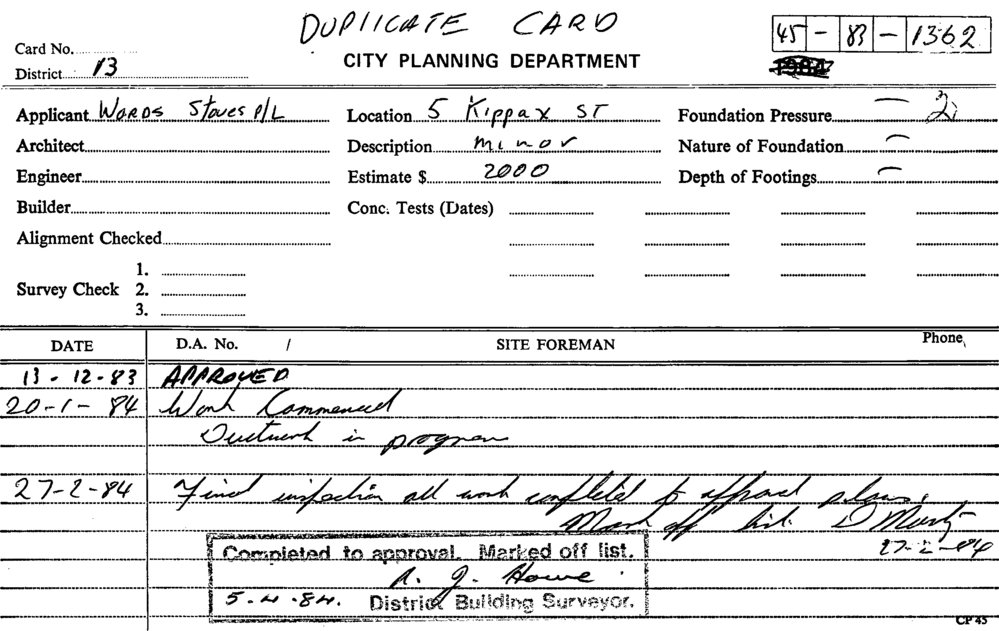 DUPLICATE CARD
45 - 83 - 1362
Card No.
CITY PLANNING DEPARTMENT
District 13
Applicant Words Stoves P/L Location 5 Kippax ST Foundation Pressure —
Architect Description minor Nature of Foundation —
Engineer Estimate $ 2000 Depth of Footings —
Builder Conc. Tests (Dates)
Alignment Checked
1.
Survey Check 2.
3.
DATE D.A. No. / SITE FOREMAN Phone
13-12-83 APPROVED
20-1-84 Work Commenced
Ductwork in progress
27-2-84 Final inspection all work completed to approved plans.
Mark off list. D
27-2-84
Completed to approval. Marked off list.
A. J. Howe
5-4-84. District Building Surveyor.
CP 45